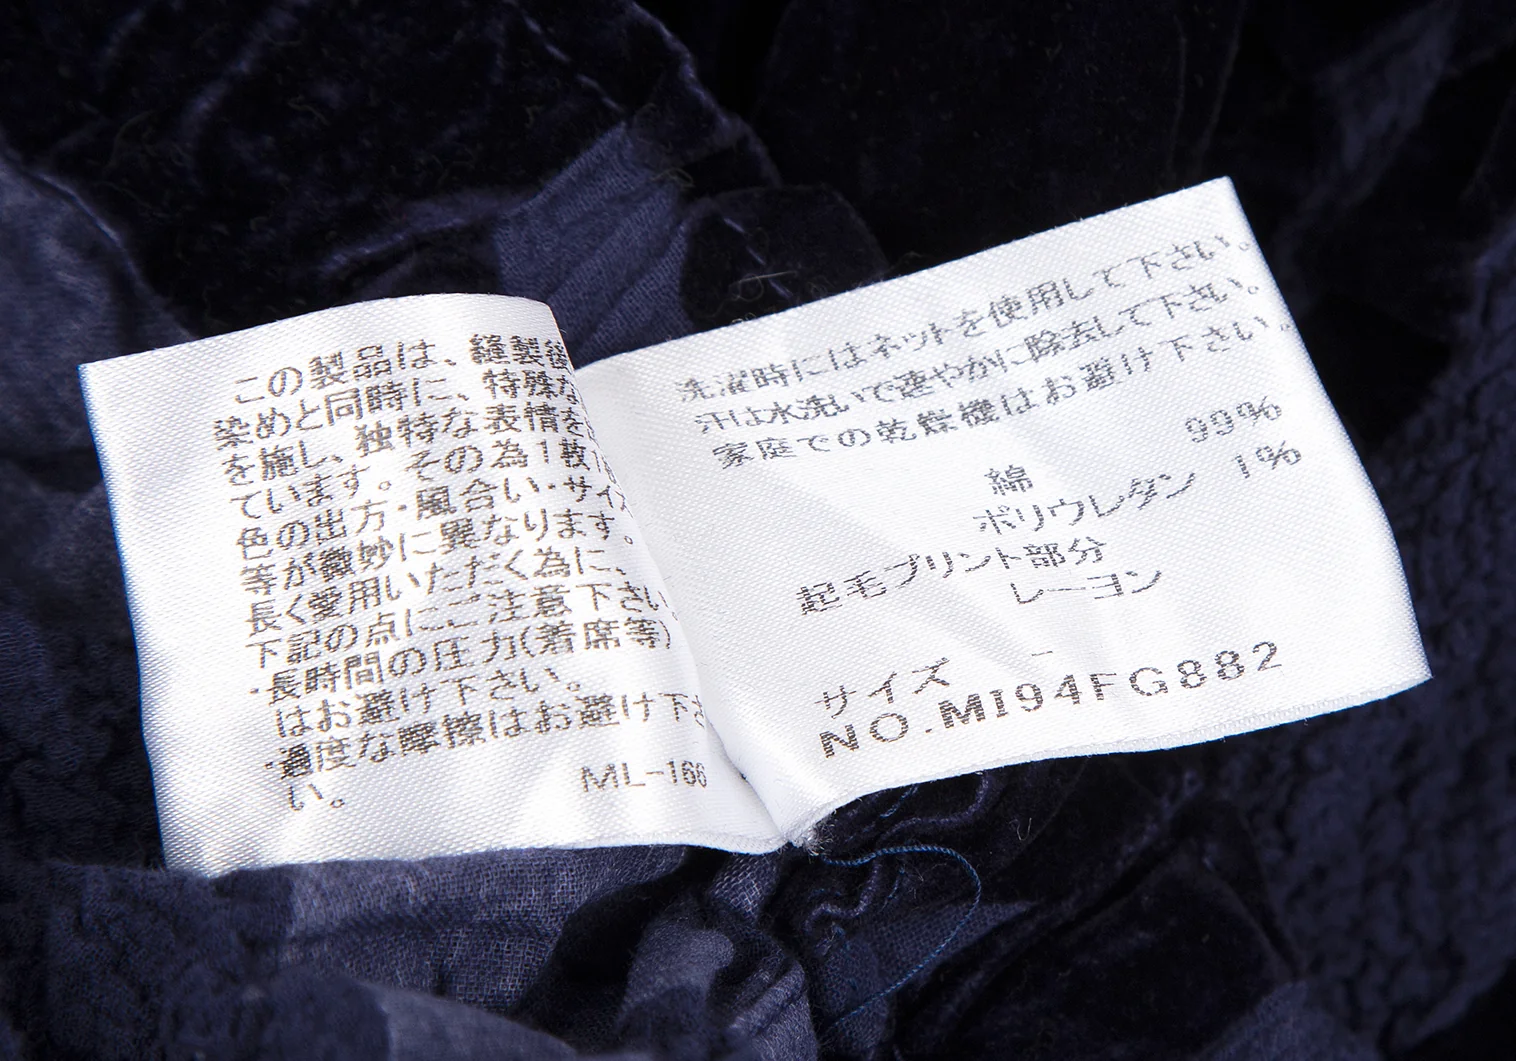 この製品は、縫製後
染めと同時に、特殊な
を施し、独特な表情を
ています。その為1枚
色の出方・風合い・サイズ
等が微妙に異なります。
長く愛用いただく為に、
下記の点にご注意下さい。
・長時間の圧力(着席等)
はお避け下さい。
・過度な摩擦はお避け下さ
い。
ML-166
洗濯時にはネットを使用して下さい。
汗は水洗いで速やかに除去して下さい。
家庭での乾燥機はお避け下さい。
綿 99%
ポリウレタン 1%
起毛プリント部分
レーヨン
サイズ -
NO.MI94FG882